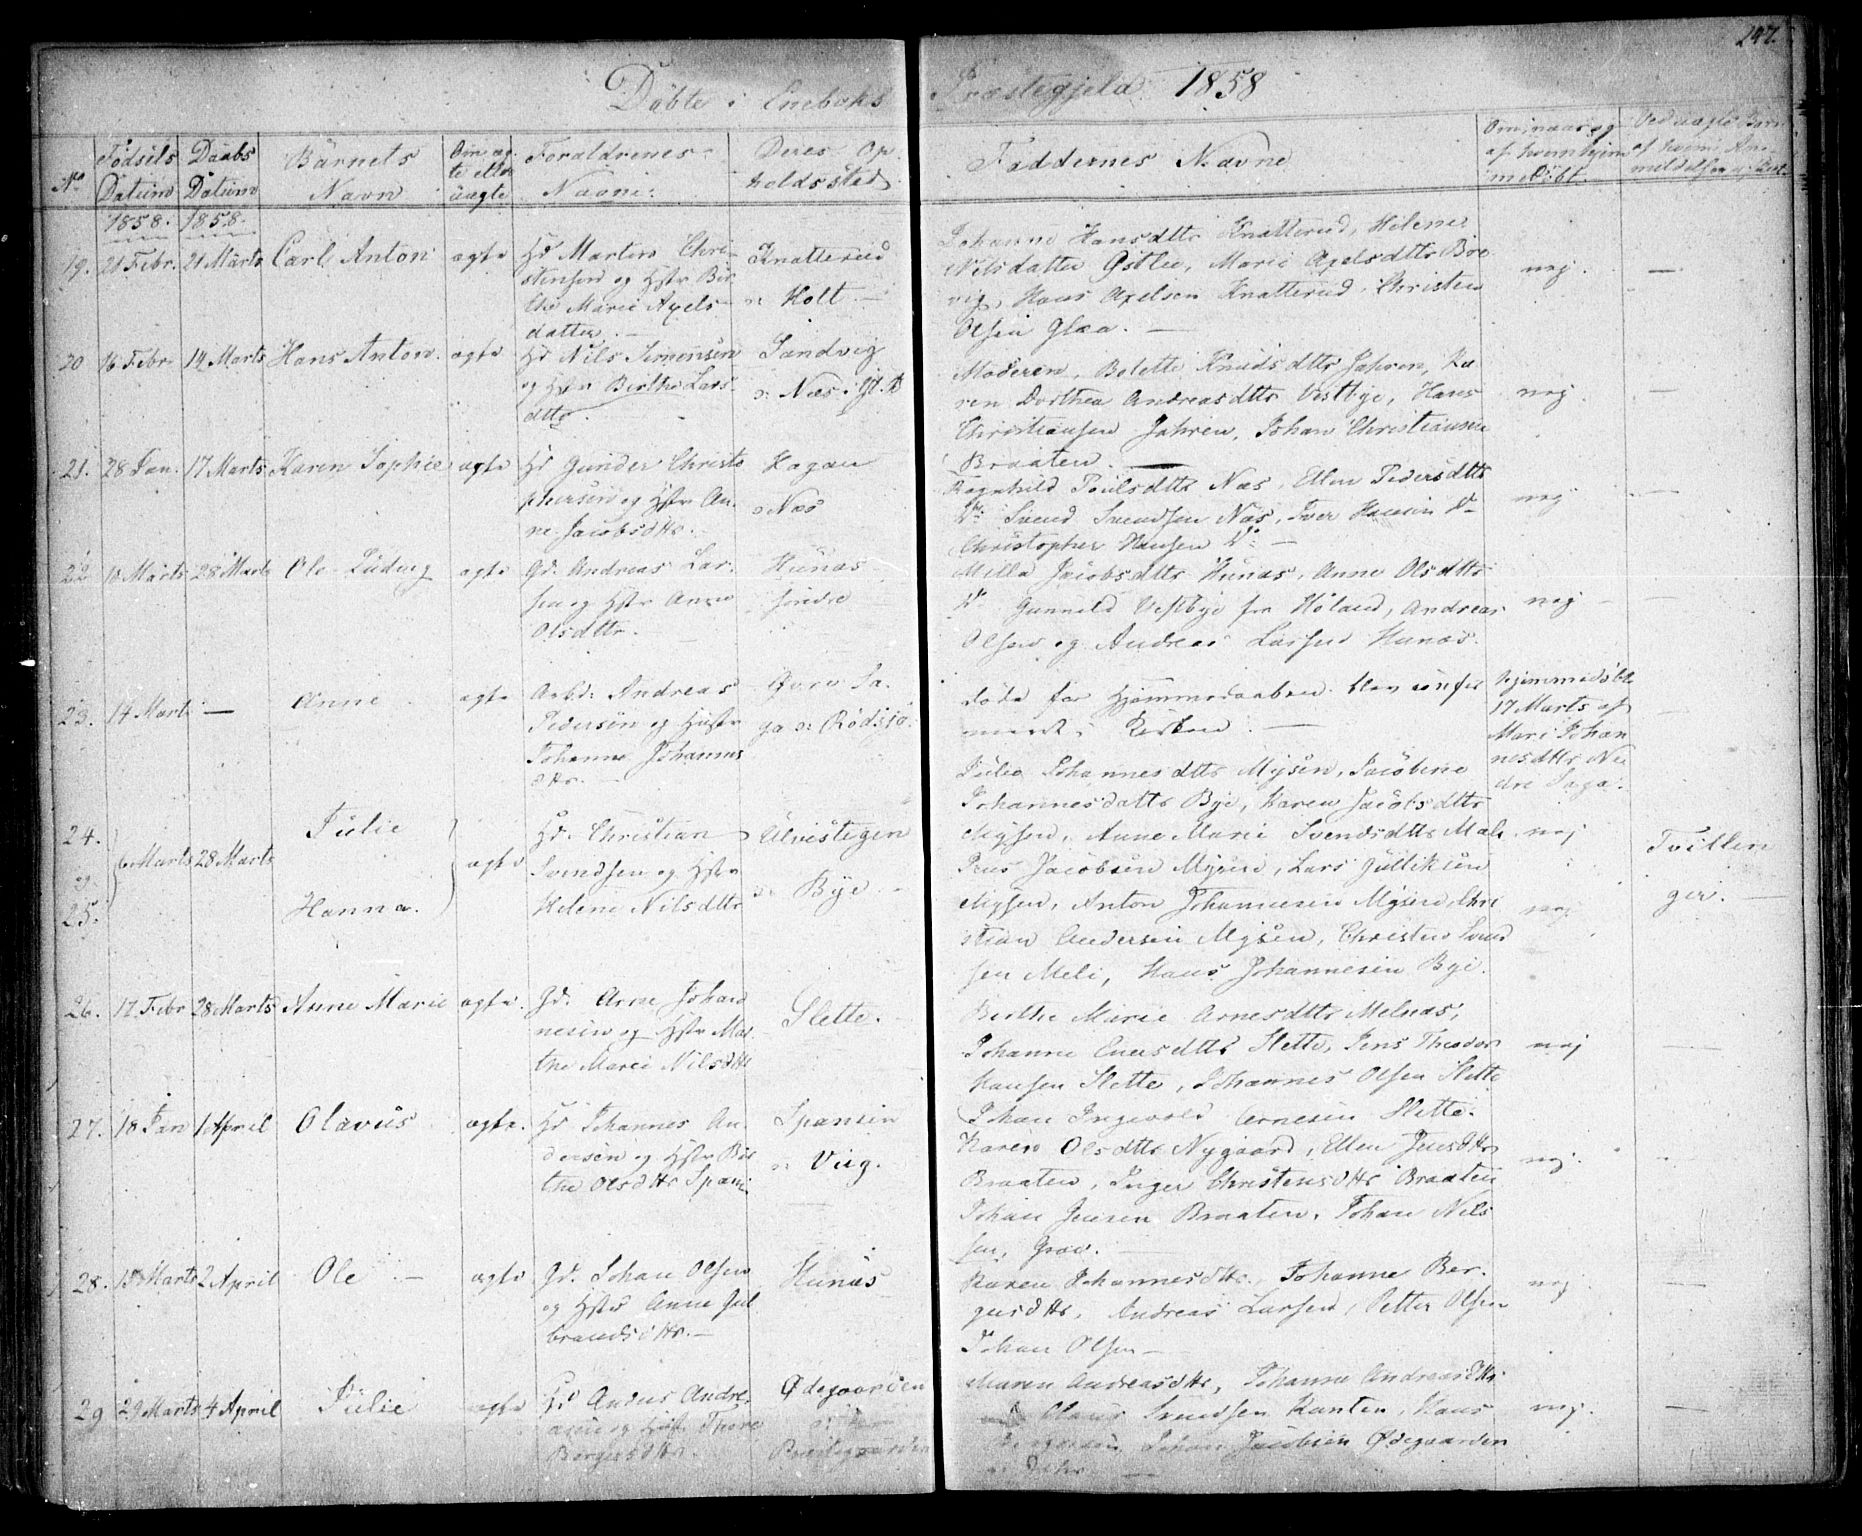 247.
Döbte i Enebaks Præstegjeld 1858
No
Fødsels Datum
Daabs Datum
Barnets Navn
Om ægte eller uægte
Forældrenes Navne.
Deres Opholdssted
Faddernes Navne
Om inaar og af hvem hjemmedöbt.
Ved uægte Børn af hvem
1858. 1858.
19. 21 Febr. 21 Marts Carl Anton ægte
Hd Martin Chri-
stensen og Hstr Bir
the Marie Axels
datter. -
Knatterud
o: Holt -
Johanne Hansdttr Knatterud, Helene
Nilsdatter Østlie, Marie Axelsdttr Bre
vig, Hans Axelsen Knatterud, Christen
Olsen Glaa. -
nej. -
20 16 Febr. 14 Marts Hans Anton. ægte
Hd Nils Simensen
og Hstr Birthe Lars
dttr.
Sandvig
o: Næs i
Moderen, Bolette Knudsdttr Jahren, Ka
ren Dorthea Andreasdttr Vestbye, Hans
Christiansen Jahren, Johan Christiansen
Braaten. -
nej. -
21. 28 Jan. 17 Marts Karen Sophie ægte
Hd Gunder Christo
phersen og Hstr An
ne Jacobsdttr. -
Hagan
o: Næs
Ragnhild Poulsdttr Næs, Ellen Pedersdttr
Do: Svend Svendsen Næs, Iver Hansen Do
Christopher Hansen Do: -
nej. -
22 10 Marts 28 Marts Ole Ludvig ægte
Gd. Andreas Lar-
sen og Hstr Anne
Olsdttr. -
Hunæs
søndre
Milla Jacobsdttr Hunæs, Anne Olsdttr
Do Gunnild Vestbye fra Høland, Andreas
Olsen og Andreas Larsen Hunæs.
nej - -
23. 14 Marts - Anne ægte
Arbd: Andreas
Pedersen og Hustr
Johanne Johannes
dttr. -
Saga o: Rødsjø
døde før Hjemmedaaben blev confir
meret i Kirken. -
hjemmedöbt
17 Marts af
Mari Johan
nesdttr Ne
dre Saga.
-
24. og 25. 6 Marts 28 Marts
Julie
Hanna.
ægte
Hd. Christian
Svendsen og Hstr
Helene Nilsdttr
Ulvestegen
o: Bye -
Julie Johannesdttr Mysen, Jacobine
Johannesdattr Bye, Karen Jacobsdttr
Mysen, Anne Marie Svendsdttr Mele
Peus Jacobsen Mysen, Lars Gulliksen
Mysen, Anton Johannesen Mysen, Chri
stian Andersen Mysen, Christen Svend
sen Mele, Hans Johannesen Bye.
nej
nej
Tvillin
ger. -
26. 17 Febr 28 Marts Anne Marie ægte.
Gd. Arne Johan
nesen og Hstr Mar
the Marie Nilsdttr
Slette. -
Birthe Marie Arnesdttr Melnæs,
Johanne Eversdttr Slette, Jens Theodor
Hansen Slette, Johannes Olsen Slette
Johan Ingevold Arnesen Slette.
nej -
27. 18 Jan 1 April Olavus ægte.
Hd Johannes An
dersen og Hstr Bir
the Olsdttr Spani
Spansen
o: Vüg.
Karen Olsdttr Nygaard, Ellen Jensdttr
Braaten, Inger Christensdttr Braaten
Johan Jensen Braaten, Johan Nils
sen, Græv. -
nej. -
28. 15 Marts 2 April Ole - ægte
Gd. Johan Olsen
og Hstr Anne Gul
brandsdttr. -
Hunæs
Karen Johannesdttr, Johanne Ber-
gersdttr, Andreas Larsen, Petter Olsen
Johan Olsen -
nej -
29 29 Marts 4 April Julie ægte
Hd Andreas Andre
asen og Hstr Thore
Borgersdttr.
Ødegaarden
o:
Præstegaarden
Maren Andreasdttr, Johanne Andreasdttr
Olaus Svendsen Kanten, Hans
Johan Jacobsen Ødegaarden
-
nej. -